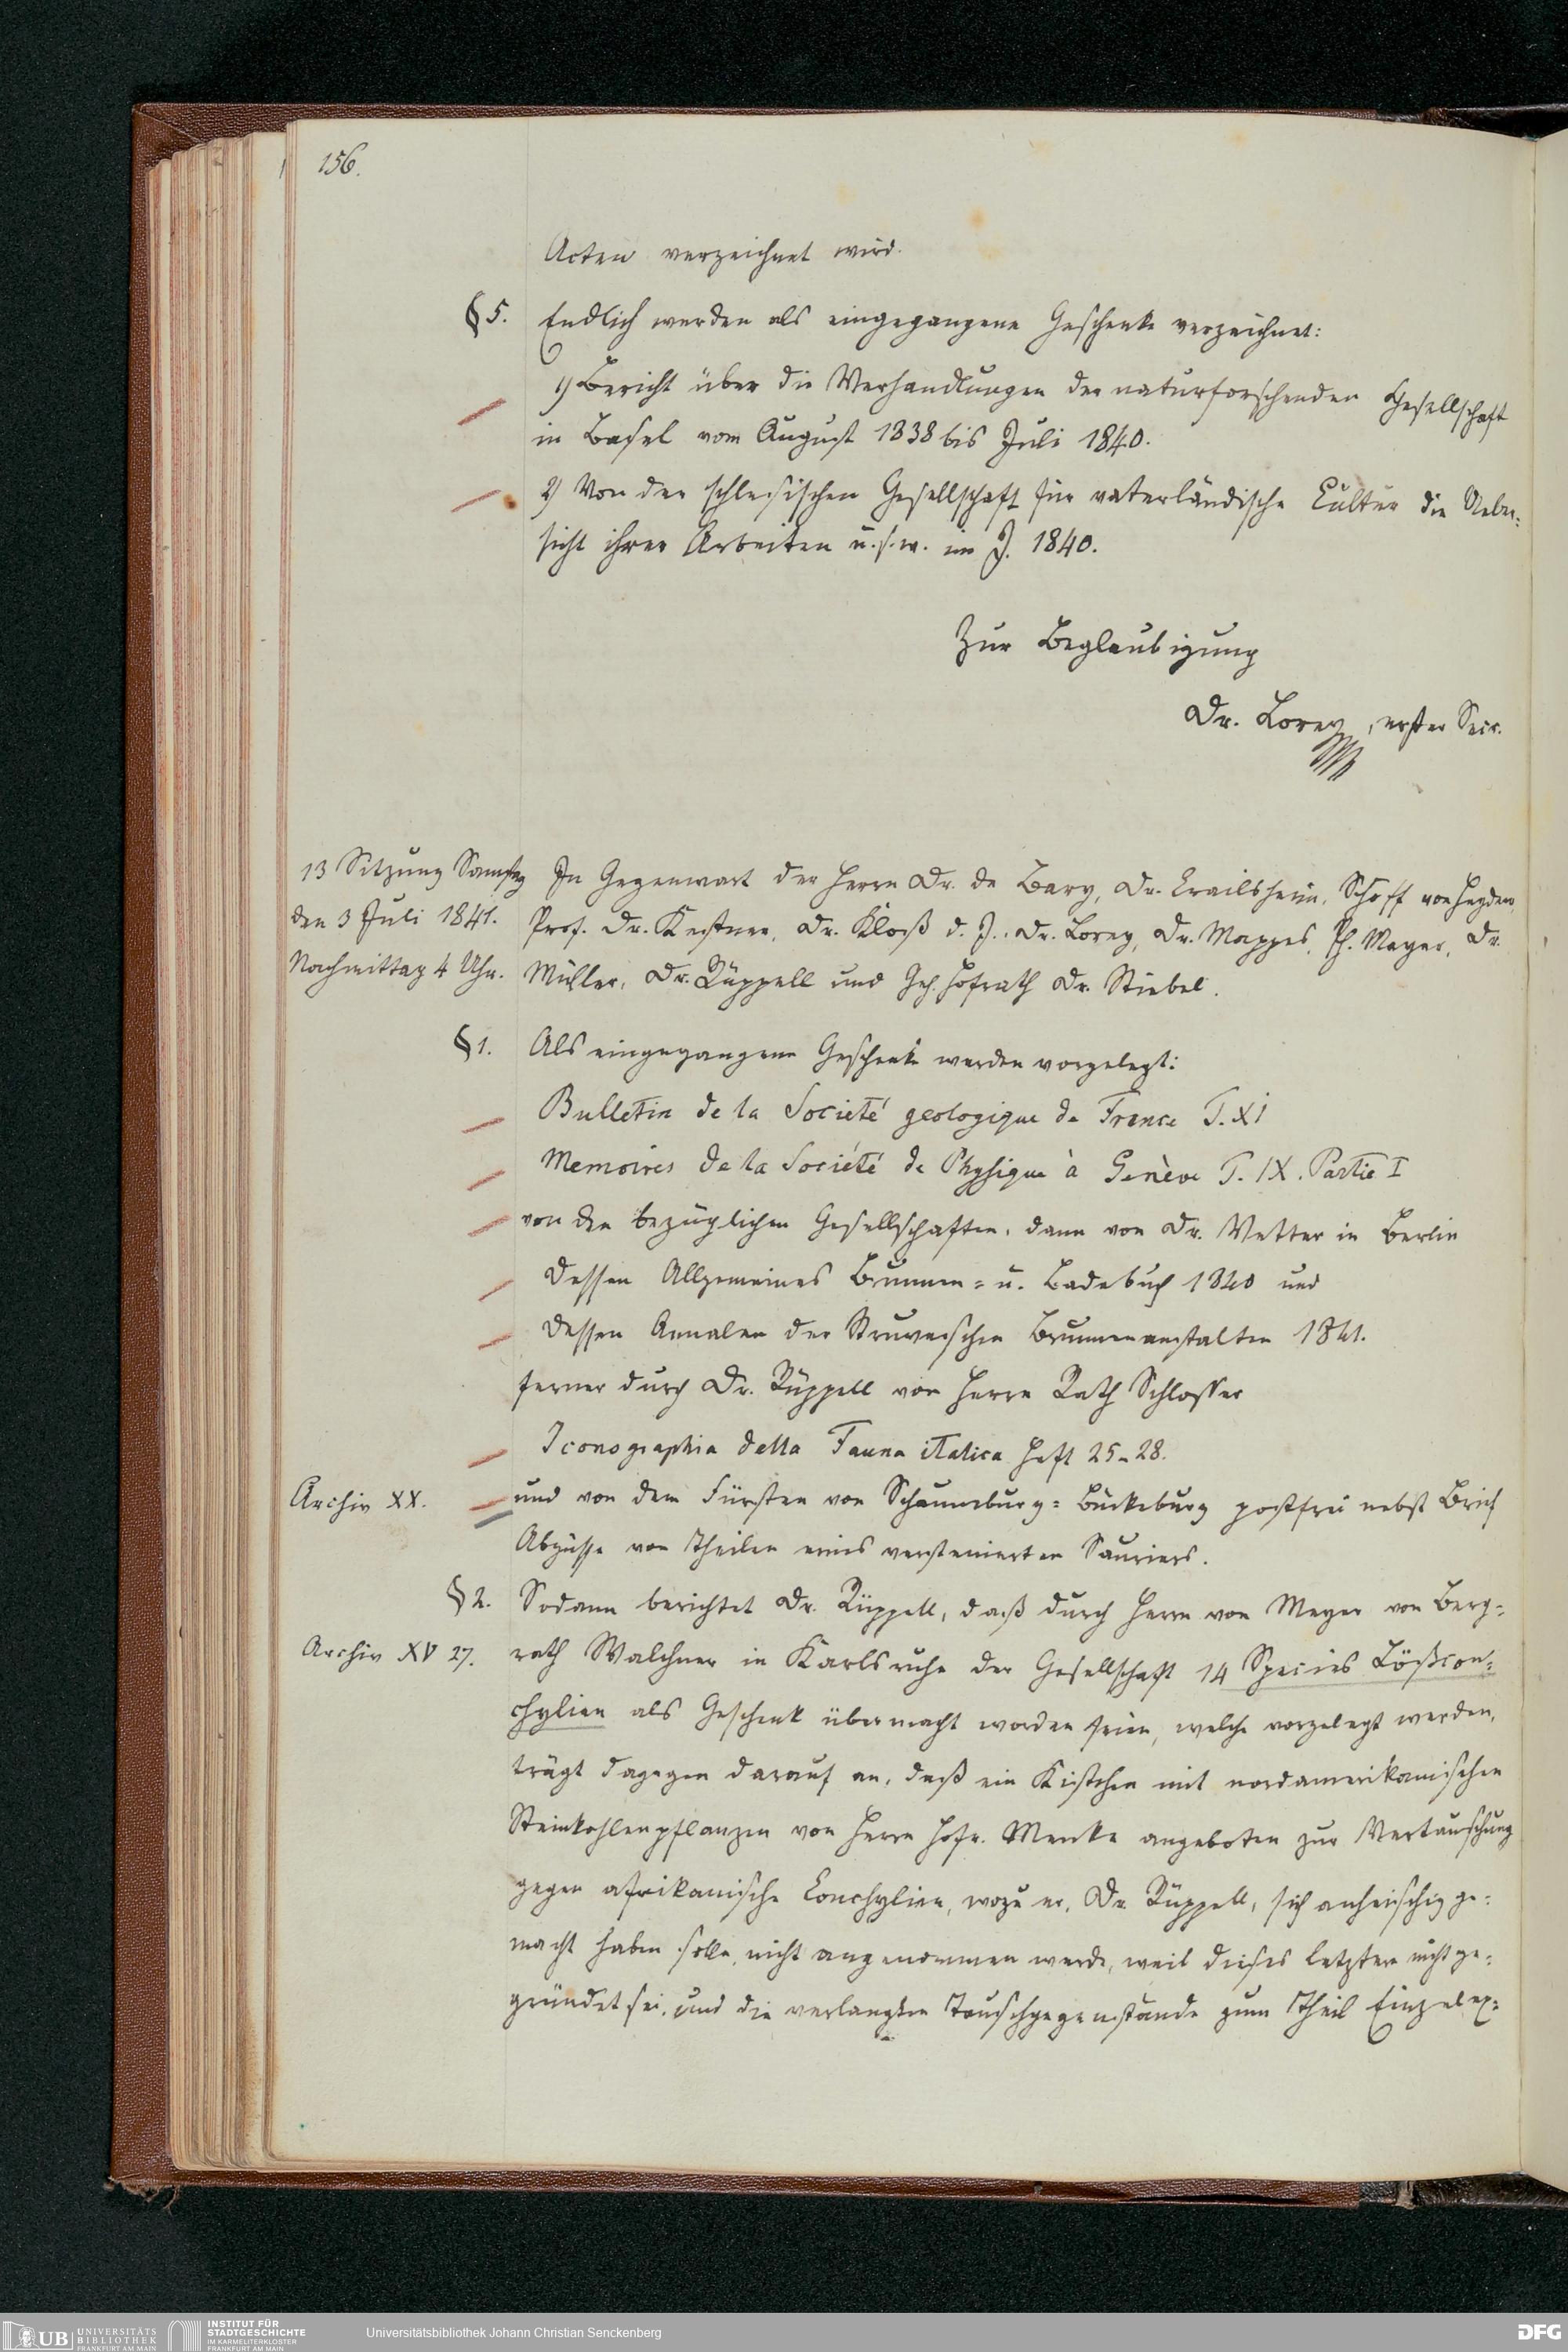 156.
Acten verzeichnet wird.
§ 5. Endlich werden als eingegangene Geschenke verzeichnet:
1) Bericht über die Verhandlungen der naturforschenden Gesellschaft
in Basel vom August 1838 bis Juli 1840.
2) Von der schlesischen Gesellschaft für vaterländische Cultur die Ueber-
sicht ihrer Arbeiten u. s. w. im J. 1840.
Zur Beglaubigung
Dr. Lorey, erster Secr.
13 Sitzung Samstag
den 3 Juli 1841.
Nachmittag 4 Uhr.
In Gegenwart der Herrn Dr. de Bary, Dr. Crailsheim, Schöff von Heyden,
Prof. Dr. Kestner, Dr. Kloß d. J., Dr. Lorey, Dr. Mappes, Ph. Mayer, Dr.
Müller, Dr. Rüppell und Geh. Hofrath Dr. Stiebel.
§ 1. Als eingegangene Geschenke werden vorgelegt:
Bulletin de la Societé geologique de France T. XI
Memoires de la Société de Physique à Genève T. IX. Partie I
von den bezüglichen Gesellschaften, dann von Dr. Vetter in Berlin
dessen Allgemeines Brunnen- u. Badebuch 1840 und
dessen Annalen der Struveischen Brunnenanstalten 1841.
ferner durch Dr. Rüppell von Herrn Rath Schlosser
Iconographia della Fauna italica Heft 25-28.
Archiv XX. und von dem Fürsten von Schaumburg-Bückeburg postfrei nebst Brief
Abgüsse von Theilen eines versteinerten Sauriers.
§ 2. Sodann berichtet Dr. Rüppell, daß durch Herrn von Meyer von Berg-
Archiv XV 27. rath Walchner in Karlsruhe der Gesellschaft 14 Species Lößcon-
chylien als Geschenk übermacht worden seien, welche vorgelegt werden,
trägt dagegen darauf an, daß ein Kistchen mit nordamerikanischen
Steinkohlenpflanzen von Herrn Hofr. Menke angeboten zur Vertauschung
gegen afrikanische Conchylien, wozu er, Dr. Rüppell, sich anheischig ge-
macht haben solle, nicht angenommen werde, weil dieses letztere nicht ge-
gründet sei, und die verlangten Tauschgegenstände zum Theil Einzelex-
UB UNIVERSITÄTS
BIBLIOTHEK
FRANKFURT AM MAIN
INSTITUT FÜR
STADTGESCHICHTE
IM KARMELITERKLOSTER
FRANKFURT AM MAIN
Universitätsbibliothek Johann Christian Senckenberg
DFG